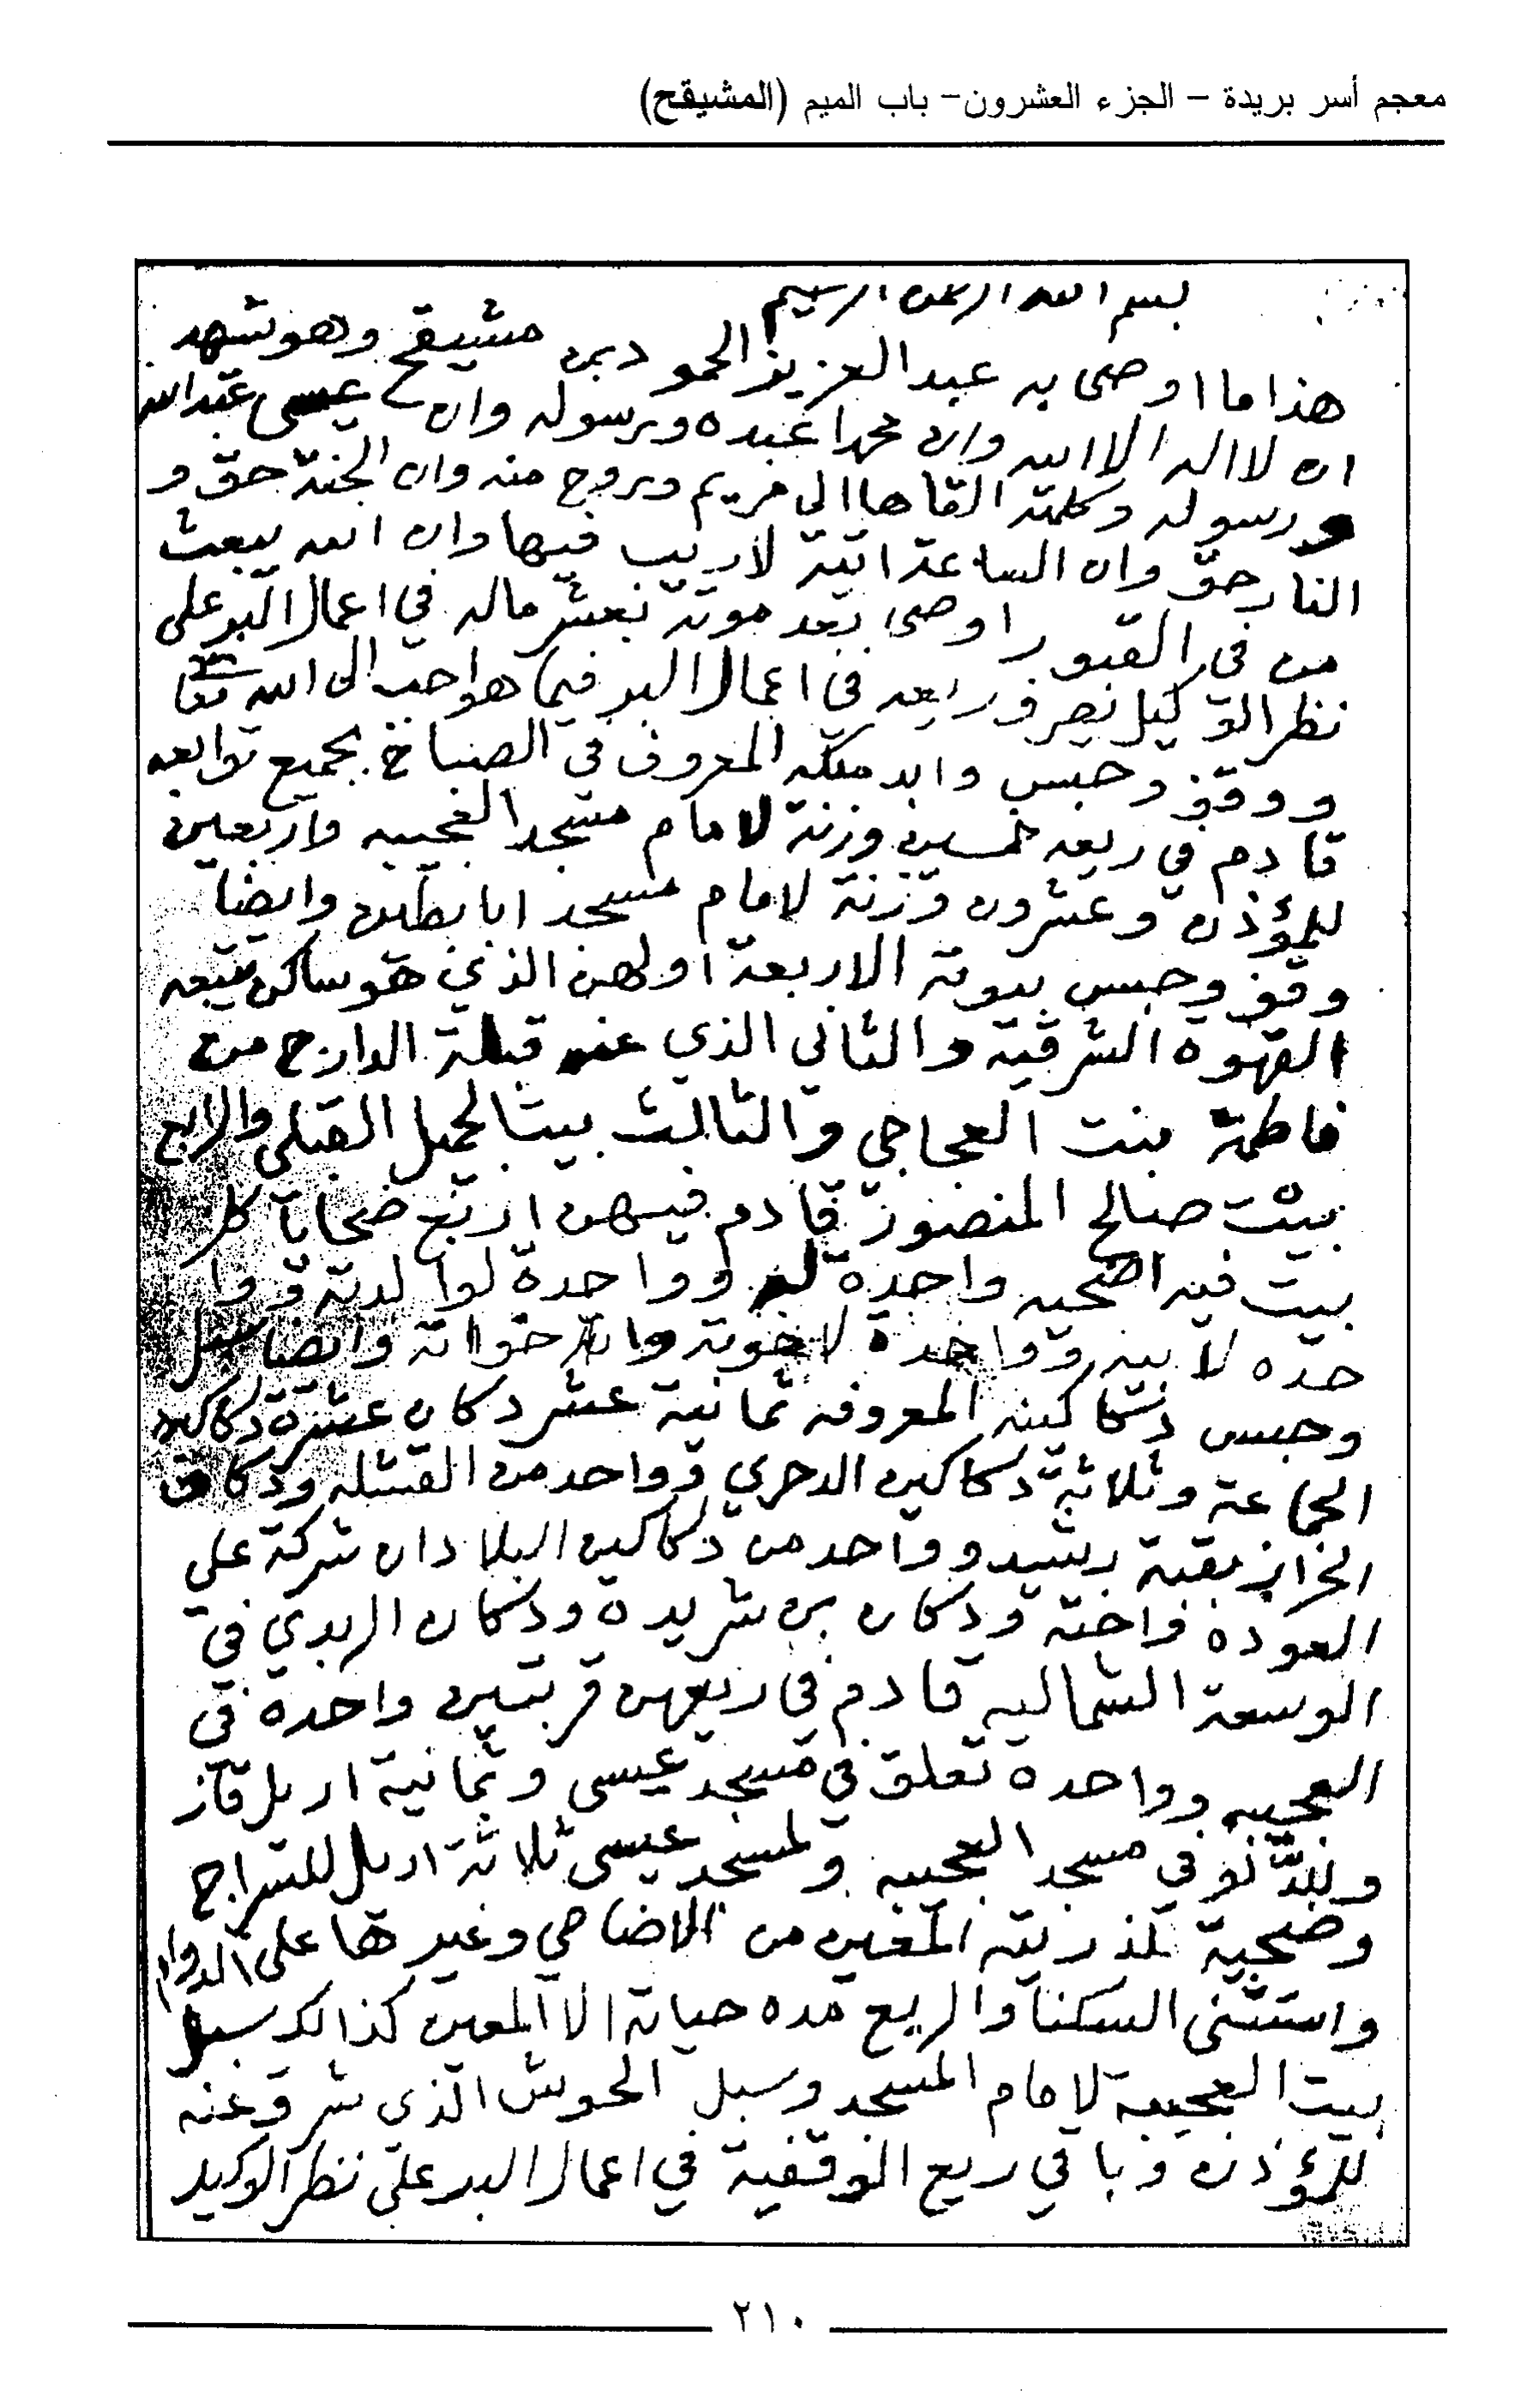 معجم أسر بريدة – الجزء العشرون– باب الميم (المشيقح)
بسم الله الرحمن الرحيم
هذا ما اوصى به عبد العزيز الحمود بن مشيقح وهو شهد
ان لا اله الا الله وان محمدا عبده ورسوله وان عيسى عبد الله
ورسوله وكلمته القاها الى مريم وروح منه وان الجنة حق و
النار حق وان الساعة اتية لا ريب فيها وان الله يبعث
من في القبور اوصى بعد موته بعشر ماله في اعمال البر على
نظر الوكيل يصرف ريعه في اعمال البر فيما هو احب الى الله تعا
ووقف وحبس وابد ملكه المعروف في الصباخ بجميع توابعه
قادم في ريعه خمسين وزنة لامام مسجد العجيبه واربعين
للمؤذن وعشرون وزنة لامام مسجد ابا بطين وايضا
وقف وحبس بيوته الاربعة اولهن الذي هو ساكن يتبعه
القهوة الشرقية والثاني الذي عنه قبلة الدارج من
فاطمة بنت العجاجي والثالث بيت الجميل القبلي والرابع
بيت صالح المنصور قادم فيهن اربع ضحايا كل
بيت فيه اضحيه واحدة له وواحدة لوالدته ووا
حده لابيه وواحدة لاخوته واخواته وايضا سبل
وحبس دكاكينه المعروفه ثمانية عشر دكان عشرة دكاكين
الجماعة وثلاثة دكاكين وواحد من القشله ودكان
الخراز بقية رشيد وواحد من دكاكين البلادان شركة علي
العوده واخته ودكان بن شريدة ودكان الربدي في
الوسعة الشماليه قادم في ريعهن قربتين واحدة في
العجيبه وواحدة تعلق في مسجد عيسى وثمانية اريل قاز
في مسجد العجيبه ولمسجد عيسى ثلاثة اريل للسراج
وضحية لذريته المعين من الاضاحي وغيرها على الدوام
واستثنى السكنا والريع مده حياته الا المعين كذالك سبل
بيت العجيبة لامام المسجد وسبل الحوش الذي شرق عنه
للمؤذن وباقي ريع الوقفية في اعمال البر على نظر الوكيل
٢١٠